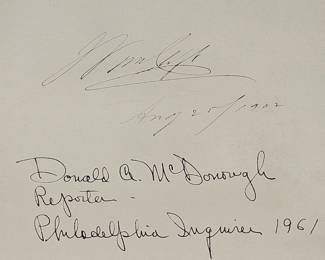 Aug 25/1902
Donald A. McDonough
Reporter -
Philadelphia Inquirer 1961